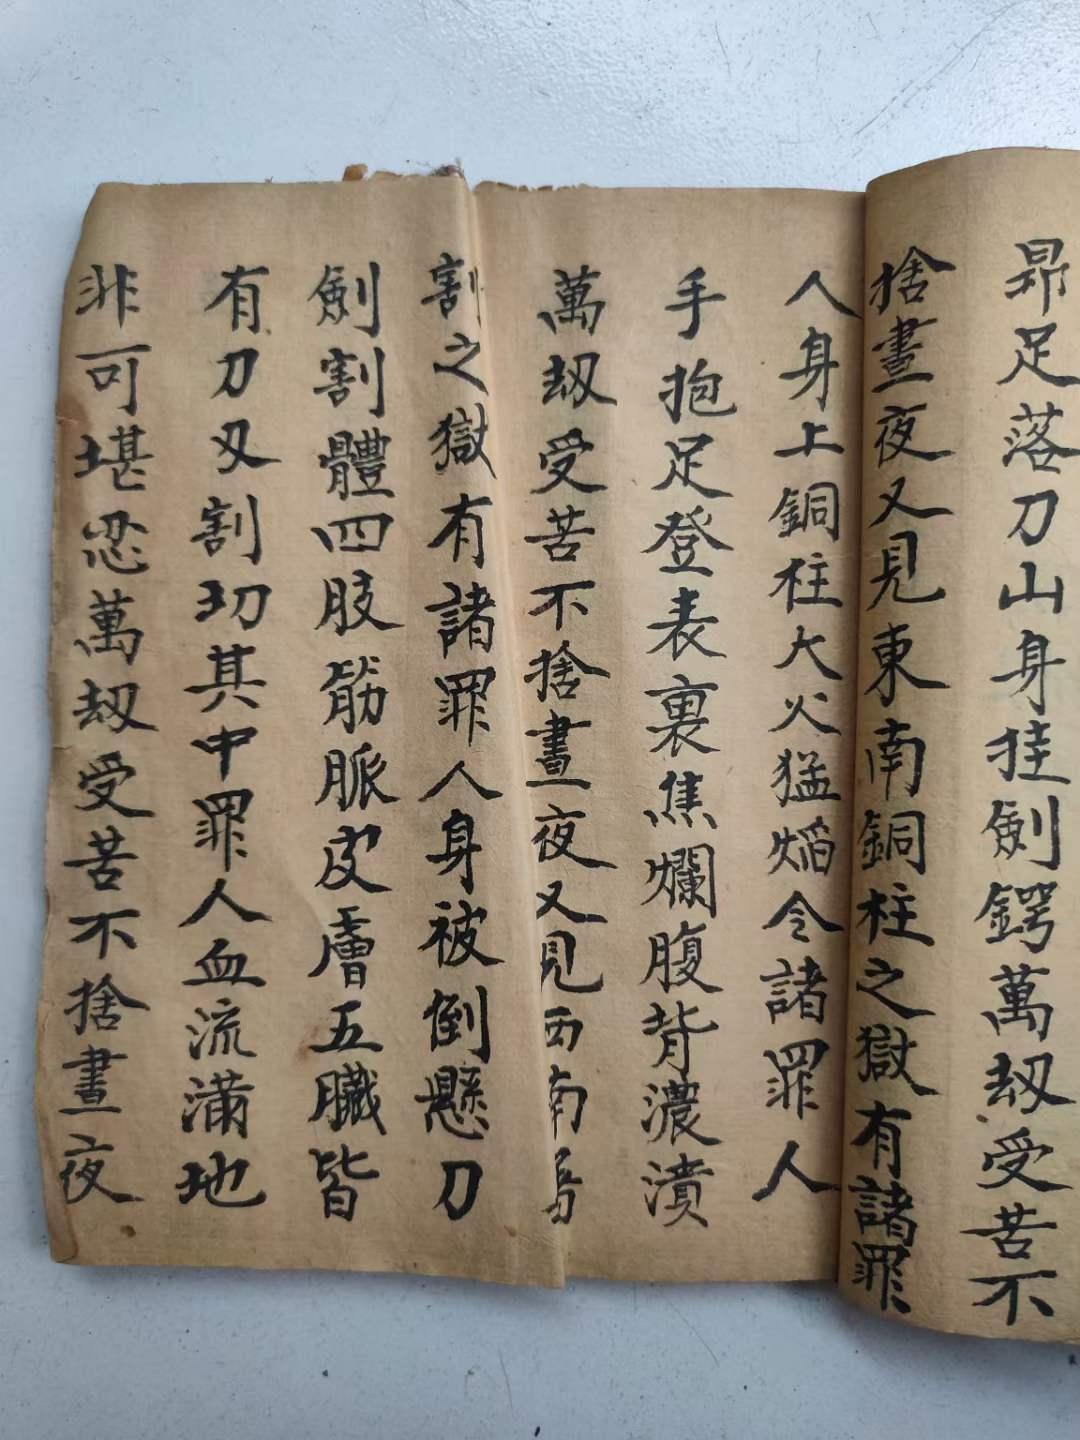 昴足落刀山身挂劍鍔萬刼受苦不
捨晝夜又見東南銅柱之獄有諸罪
人身上銅柱大火猛焰令諸罪人
手抱足登表裏焦爛腹背濃潰
萬刼受苦不捨晝夜又見西南屠
割之獄有諸罪人身被倒懸刀
劍割體四肢筋脈皮膚五臟皆
有刀刄割切其中罪人血流滿地
非可堪忍萬刼受苦不捨晝夜